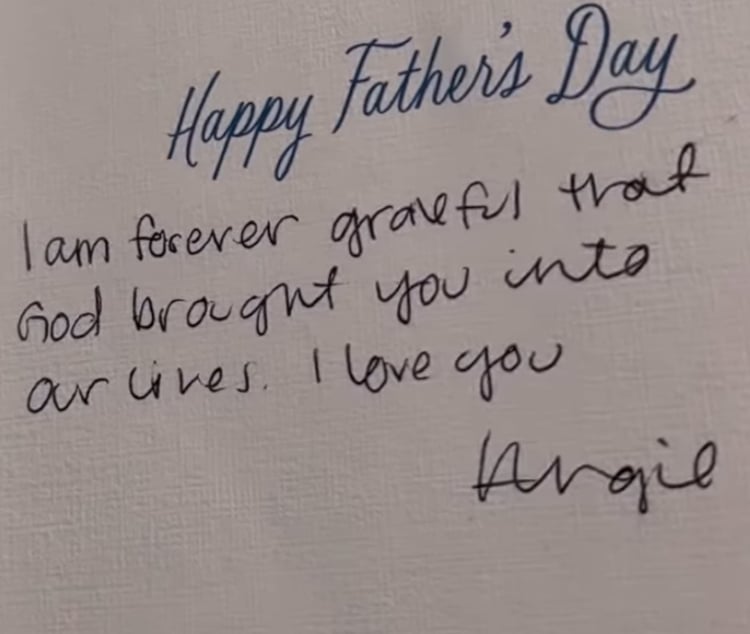 Happy Father's Day
I am forever grateful that
God brought you into
our lives. I love you
Angie